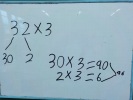 32×3
30 2
30×3=90
2×3=6
96